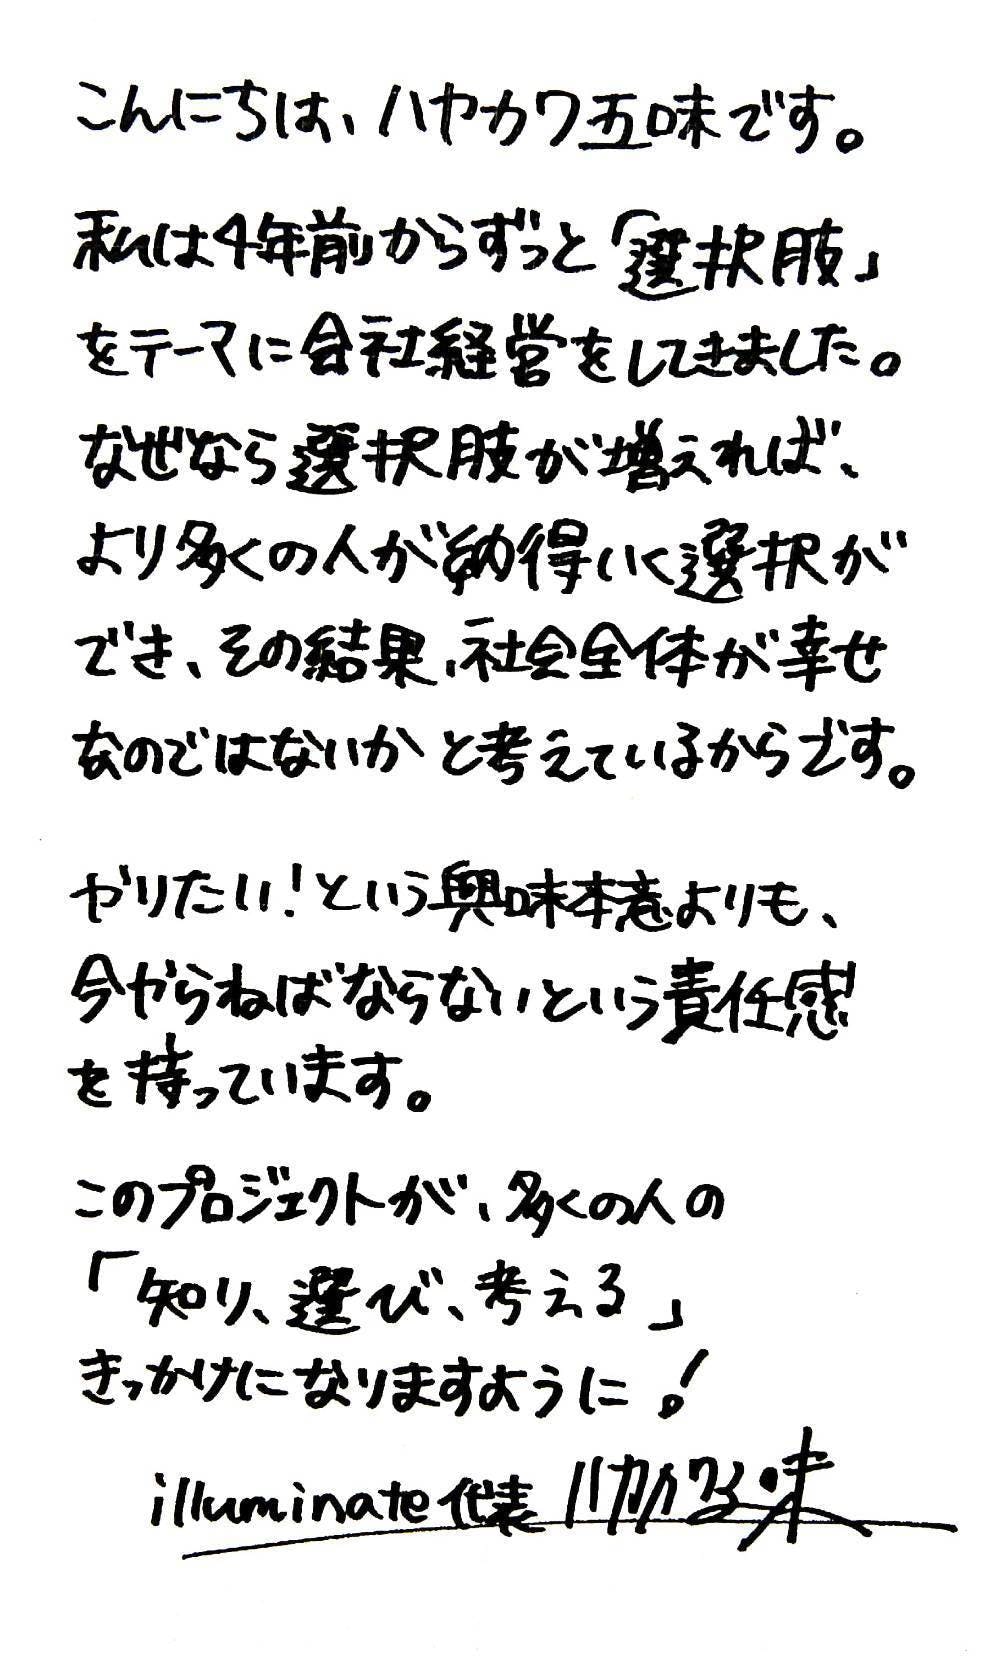 こんにちは、ハヤカワ五味です。
私は4年前からずっと「選択肢」
をテーマに会社経営をしてきました。
なぜなら選択肢が増えれば、
より多くの人が納得いく選択が
でき、その結果、社会全体が幸せ
なのではないかと考えているからです。
やりたい!という興味本意よりも、
今やらねばならないという責任感
を持っています。
このプロジェクトが、多くの人の
「知り、選び、考える」
きっかけになりますように!
illuminate代表 ハヤカワ五味